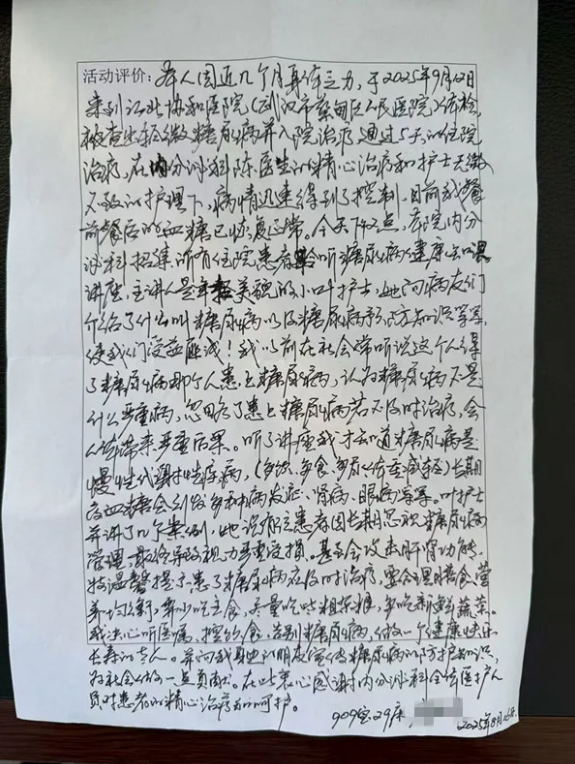 活动评价：本人因近几个月身体乏力，于2025年9月12日
来到湖北协和医院（武汉市蔡甸区人民医院）体检，
被查出轻微糖尿病并入院治疗，通过5天的住院
治疗，在内分泌科陈医生的精心治疗和护士无微
不致的护理下，病情迅速得到了控制，目前我餐
前餐后的血糖已恢复正常。今天下午2点，在院内分
泌科招集所有住院患者聆听糖尿病健康知识
讲座，主讲人是年轻美貌的小叶护士，她向病友们
介绍了什么叫糖尿病以及糖尿病预防知识等等，
使我们受益匪浅！我以前在社会常听说这个人得
了糖尿病那个人患上糖尿病，认为糖尿病不是
什么严重病，忽略了患上糖尿病若不及时治疗，会
人体带来严重后果。听了讲座我才知道糖尿病是
慢性代谢性疾病，（多饮、多食、多尿、体重减轻）长期
高血糖会引发多种病发症，肾病、眼病等等。叶护士
并讲了几个案例，她说有位患者因长期忽视糖尿病
管理，最终导致视力严重受损。甚至会攻击肝肾功能，
特温馨提示患了糖尿病应及时治疗，要合理膳食、营
养均衡，少吃主食，尽量吃些粗杂粮，多吃新鲜蔬菜。
我决心听医属，控饮食，告别糖尿病，做一个健康快乐
长寿的老人。并向我身边的朋友宣传糖尿病的防护知识，
为社会做一点贡献。在此衷心感谢内分泌科全体医护人
员对患者的精心治疗和呵护。
909室.29床
2025年9月16日